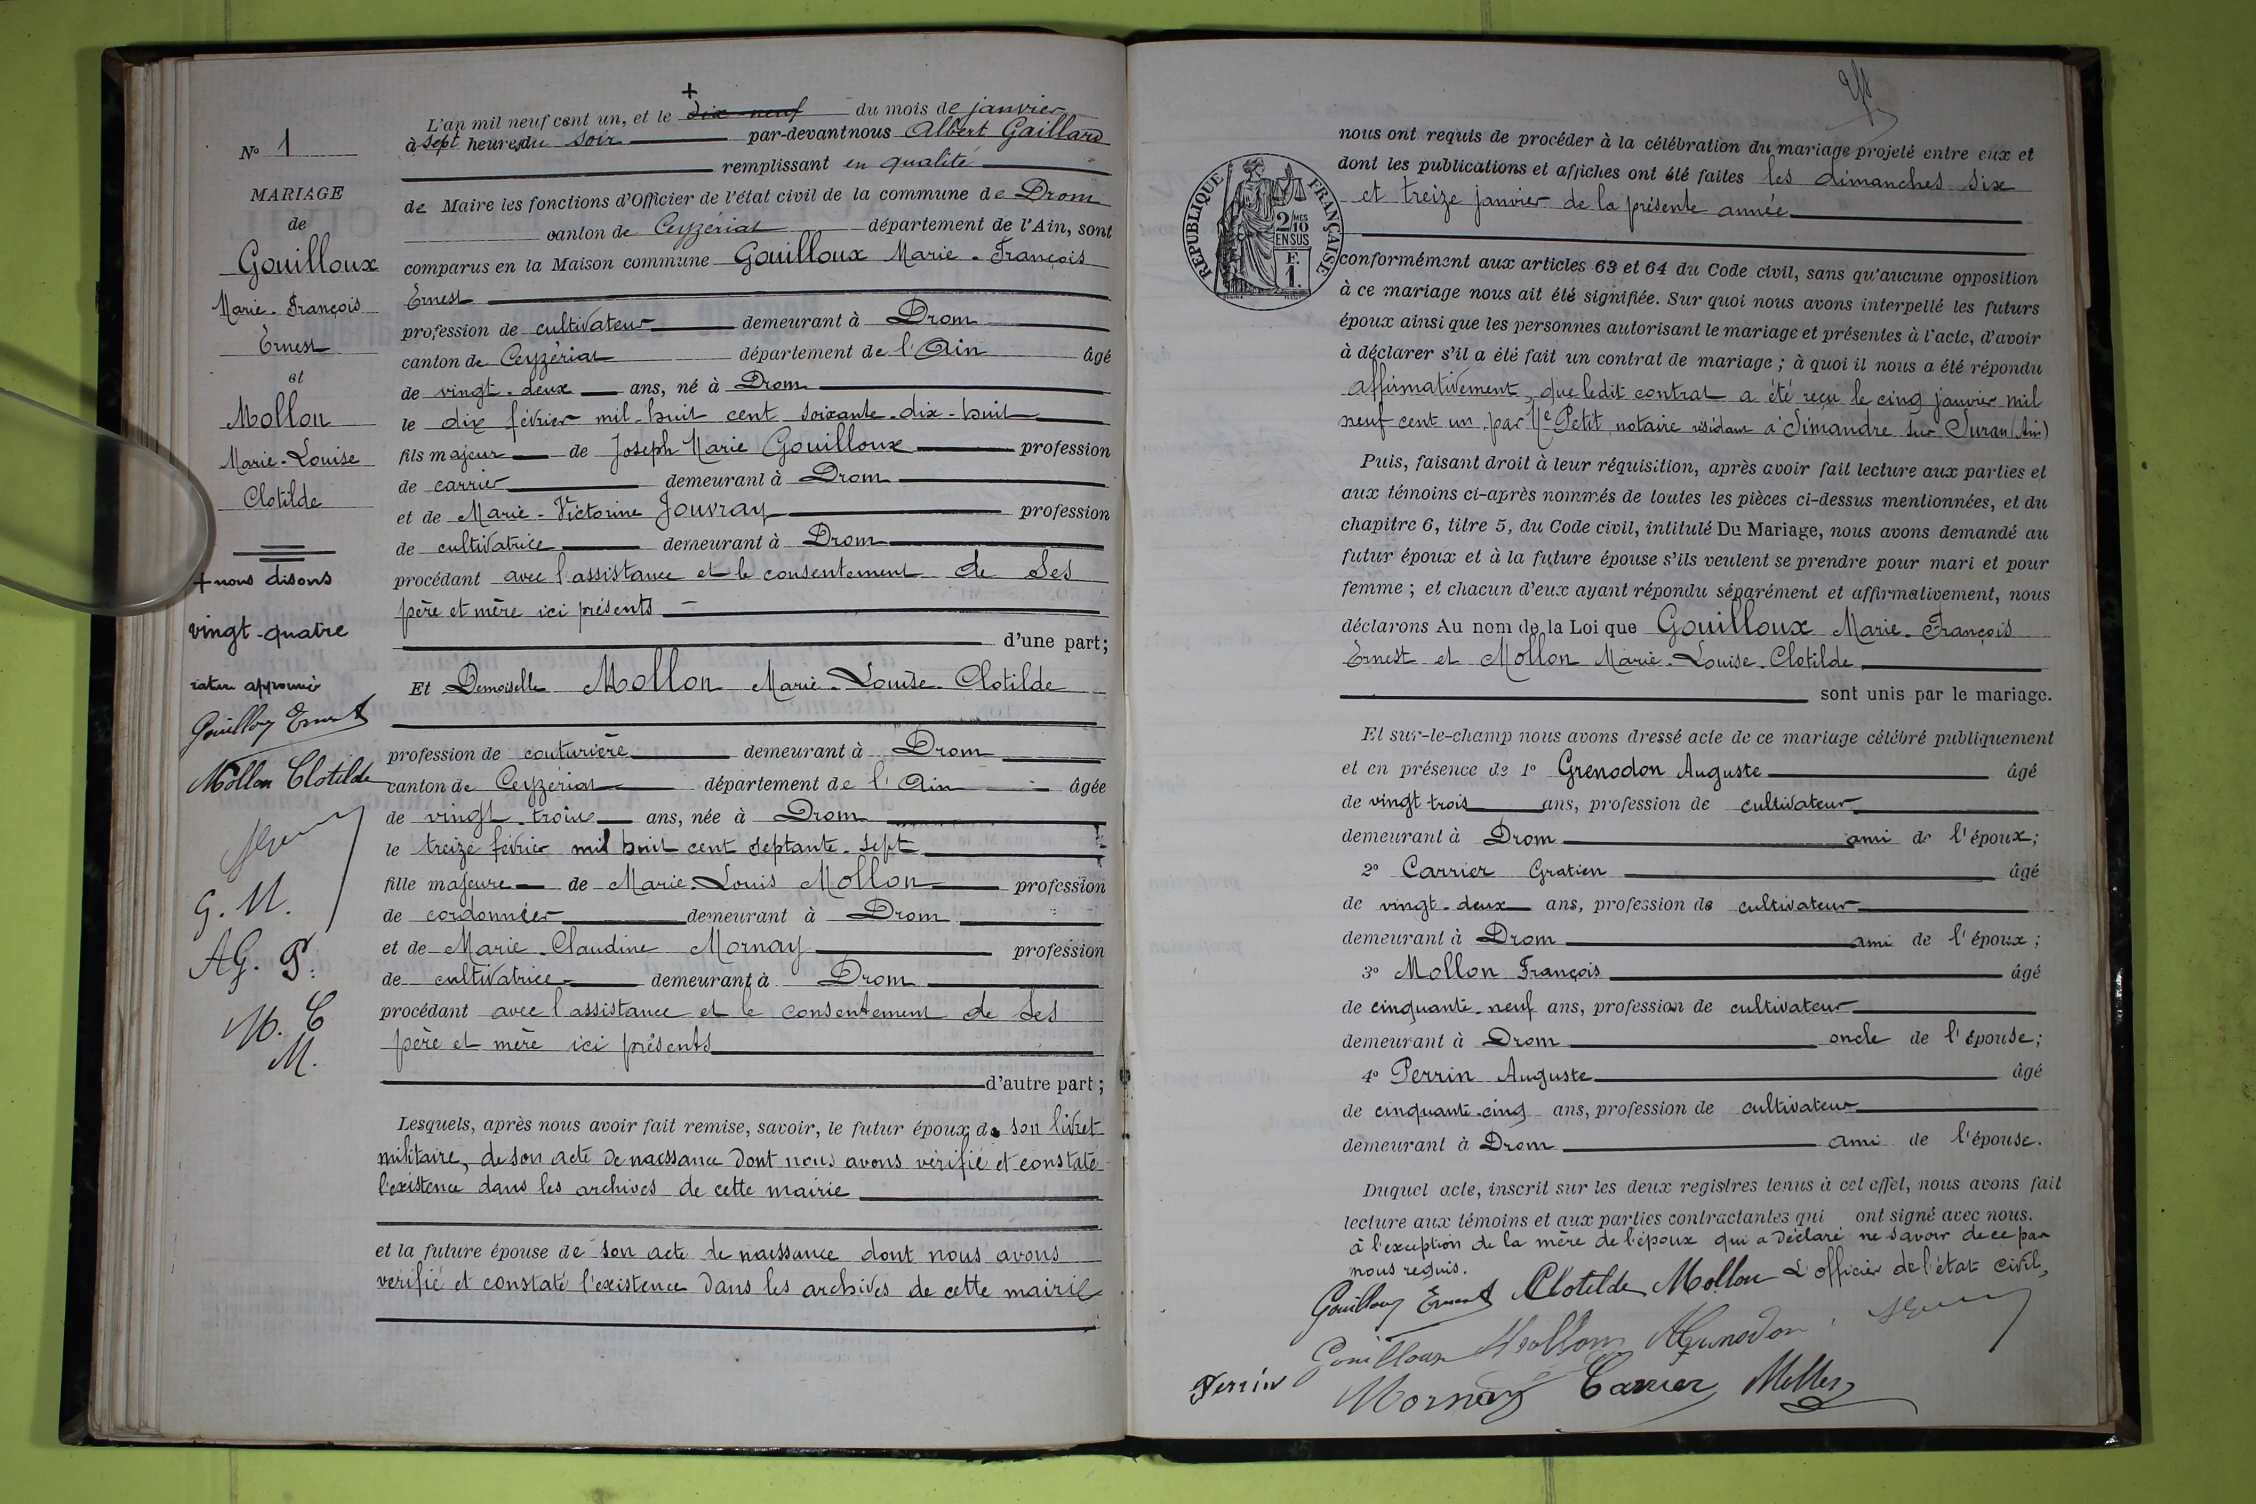 N° 1
MARIAGE
de
Gouilloux
Marie-François
Ernest
et
Mollon
Marie-Louise
Clotilde
+ nous disons
vingt-quatre
rature approuvée
Gouilloux Ernest
Mollon Clotilde
G. M.
AG. P.
M. C
M.
+
L'an mil neuf cent un, et le dix-neuf du mois de janvier
à sept heures du soir par-devant nous Albert Gaillard
remplissant en qualité
de Maire les fonctions d'Officier de l'état civil de la commune de Drom
canton de Ceyzériat département de l'Ain, sont
comparus en la Maison commune Gouilloux Marie-François
Ernest
profession de cultivateur demeurant à Drom
canton de Ceyzériat département de l'Ain âgé
de vingt-deux ans, né à Drom
le dix février mil huit cent soixante-dix-huit
fils majeur de Joseph Marie Gouilloux profession
de carrier demeurant à Drom
et de Marie-Victorine Jouvray profession
de cultivatrice demeurant à Drom
procédant avec l'assistance et le consentement de ses
père et mère ici présents
d'une part;
Et Demoiselle Mollon Marie-Louise-Clotilde
profession de couturière demeurant à Drom
canton de Ceyzériat département de l'Ain âgée
de vingt-trois ans, née à Drom
le treize février mil huit cent septante-sept
fille majeure de Marie-Louis Mollon profession
de cordonnier demeurant à Drom
et de Marie-Claudine Mornay profession
de cultivatrice demeurant à Drom
procédant avec l'assistance et le consentement de ses
père et mère ici présents
d'autre part;
Lesquels, après nous avoir fait remise, savoir, le futur époux de son livret
militaire, de son acte de naissance dont nous avons vérifié et constaté
l'existence dans les archives de cette mairie
et la future épouse de son acte de naissance dont nous avons
vérifié et constaté l'existence dans les archives de cette mairie
nous ont requis de procéder à la célébration du mariage projeté entre eux et
dont les publications et affiches ont été faites les dimanches six
et treize janvier de la présente année
RÉPUBLIQUE FRANÇAISE
2/10 MES
EN SUS
F.
1.
conformément aux articles 63 et 64 du Code civil, sans qu'aucune opposition
à ce mariage nous ait été signifiée. Sur quoi nous avons interpellé les futurs
époux ainsi que les personnes autorisant le mariage et présentes à l'acte, d'avoir
à déclarer s'il a été fait un contrat de mariage; à quoi il nous a été répondu
affirmativement, que ledit contrat a été reçu le cinq janvier mil
neuf cent un par Me Petit notaire résidant à Simandre sur Suran (Ain)
Puis, faisant droit à leur réquisition, après avoir fait lecture aux parties et
aux témoins ci-après nommés de toutes les pièces ci-dessus mentionnées, et du
chapitre 6, titre 5, du Code civil, intitulé Du Mariage, nous avons demandé au
futur époux et à la future épouse s'ils veulent se prendre pour mari et pour
femme; et chacun d'eux ayant répondu séparément et affirmativement, nous
déclarons Au nom de la Loi que Gouilloux Marie-François
Ernest et Mollon Marie-Louise-Clotilde
sont unis par le mariage.
Et sur-le-champ nous avons dressé acte de ce mariage célébré publiquement
et en présence de 1° Grenodon Auguste âgé
de vingt-trois ans, profession de cultivateur
demeurant à Drom ami de l'époux;
2° Carrier Gratien âgé
de vingt-deux ans, profession de cultivateur
demeurant à Drom ami de l'époux;
3° Mollon François âgé
de cinquante-neuf ans, profession de cultivateur
demeurant à Drom oncle de l'épouse;
4° Perrin Auguste âgé
de cinquante-cinq ans, profession de cultivateur
demeurant à Drom ami de l'épouse.
Duquel acte, inscrit sur les deux registres tenus à cet effet, nous avons fait
lecture aux témoins et aux parties contractantes qui ont signé avec nous.
à l'exception de la mère de l'époux qui a déclaré ne savoir de ce par
nous requis.
Gouilloux Ernest Clotilde Mollon L'officier de l'état civil,
Gouilloux Mollon Grenodon
Perrin Mornay Carrier